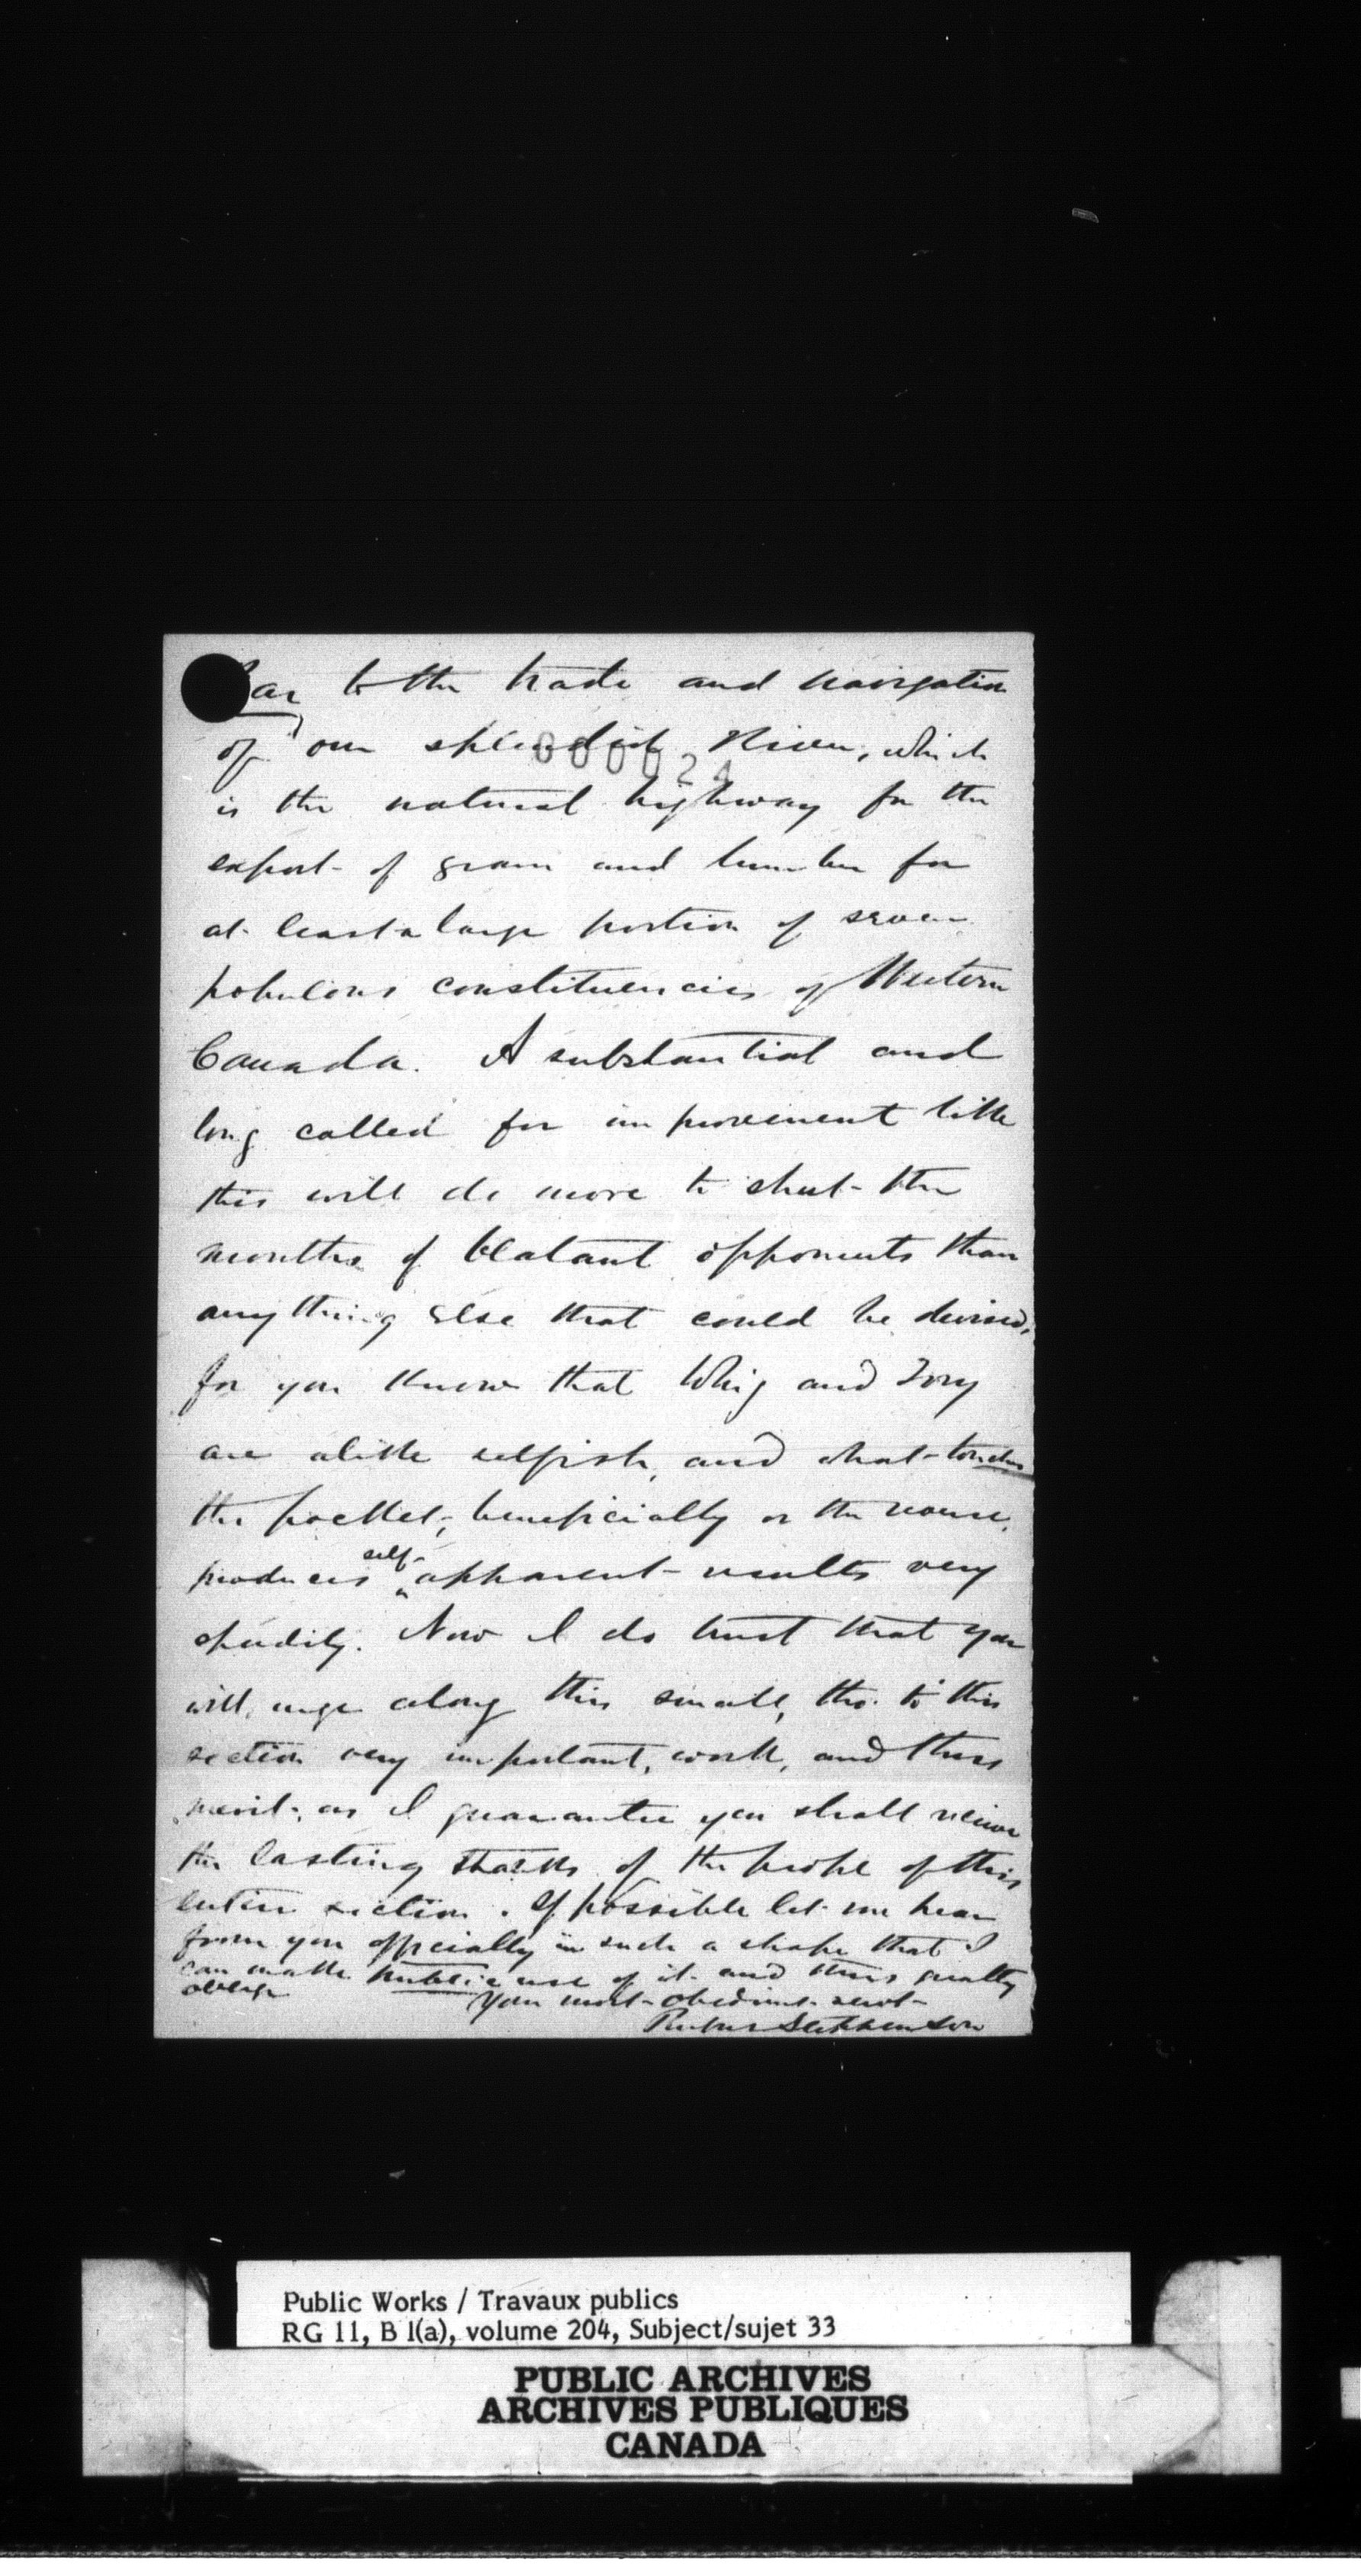 Bar to the trade and navigation
of our splendid River, which
000024
is the natural highway for the
export of grain and lumber for
at least a large portion of seven
populous constituencies of Western
Canada. A substantial and
long called for improvement like
this will do more to shut the
mouths of blatant opponents than
anything else that could be devised,
for you know that Whig and Tory
are alike selfish, and what touches
the pocket, beneficially or the reverse,
self-
produces apparent results very
speedily. Now I do trust that you
will urge along this small, tho' to this
section very important, work, and thus
merit, as I guarantee you shall receive
the lasting thanks of the people of this
entire section. If possible let me hear
from you officially in such a shape that I
can make public use of it and thus greatly
oblige
Your most obedient servt
Rufus Stephenson
Public Works / Travaux publics
RG 11, B 1(a), volume 204, Subject/sujet 33
PUBLIC ARCHIVES
ARCHIVES PUBLIQUES
CANADA